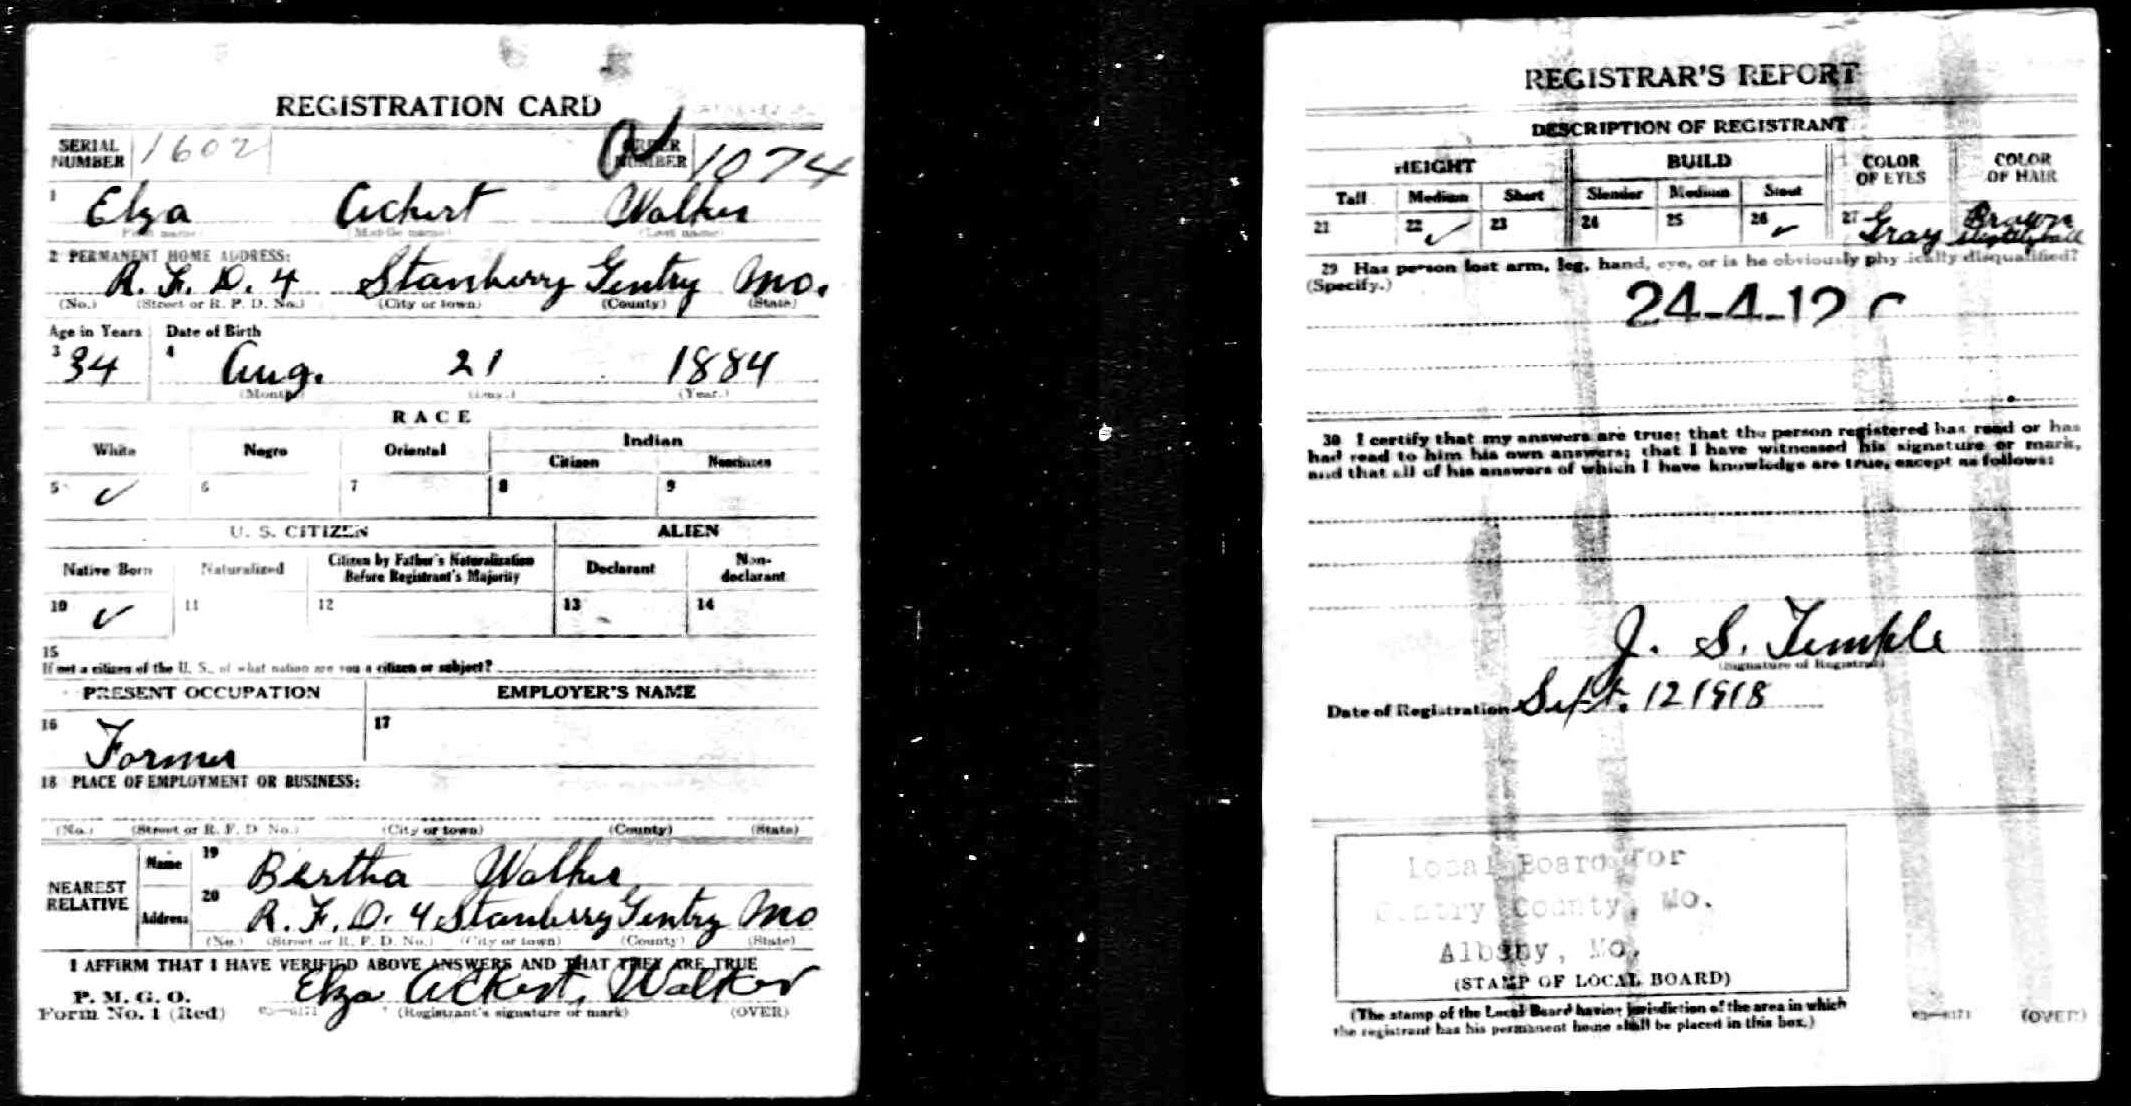 REGISTRATION CARD
SERIAL NUMBER 1602 ORDER NUMBER 1074
1 Elza Ackert Walker
(First name) (Middle name) (Last name)
2 PERMANENT HOME ADDRESS:
R. F. D. 4 Stanberry Gentry Mo.
(No.) (Street or R. F. D. No.) (City or town) (County) (State)
Age in Years Date of Birth
3 34 4 Aug. 21 1884
(Month) (Day.) (Year.)
RACE
White Negro Oriental Indian
Citizen Noncitizen
5 ✓ 6 7 8 9
U. S. CITIZEN ALIEN
Native Born Naturalized Citizen by Father's Naturalization Before Registrant's Majority Declarant Non-declarant
10 ✓ 11 12 13 14
15
If not a citizen of the U. S., of what nation are you a citizen or subject?
PRESENT OCCUPATION EMPLOYER'S NAME
16 Farmer 17
18 PLACE OF EMPLOYMENT OR BUSINESS:
(No.) (Street or R. F. D. No.) (City or town) (County) (State)
NEAREST RELATIVE Name 19 Bertha Walker
Address 20 R. F. D. 4 Stanberry Gentry Mo
(No.) (Street or R. F. D. No.) (City or town) (County) (State)
I AFFIRM THAT I HAVE VERIFIED ABOVE ANSWERS AND THAT THEY ARE TRUE
P. M. G. O.
Form No. 1 (Red) Elza Ackert, Walker
(Registrant's signature or mark) (OVER)
REGISTRAR'S REPORT
DESCRIPTION OF REGISTRANT
HEIGHT BUILD COLOR OF EYES COLOR OF HAIR
Tall Medium Short Slender Medium Stout
21 22 ✓ 23 24 25 26 ✓ 27 Gray Brown slightly bald
29 Has person lost arm, leg, hand, eye, or is he obviously physically disqualified?
(Specify.)
24-4-12 C
30 I certify that my answers are true; that the person registered has read or has
had read to him his own answers; that I have witnessed his signature or mark,
and that all of his answers of which I have knowledge are true, except as follows:
J. S. Temple
(Signature of Registrar)
Date of Registration Sept. 12 1918
Local Board for
Gentry County, Mo.
Albany, Mo.
(STAMP OF LOCAL BOARD)
(The stamp of the Local Board having jurisdiction of the area in which
the registrant has his permanent home shall be placed in this box.)
(OVER)